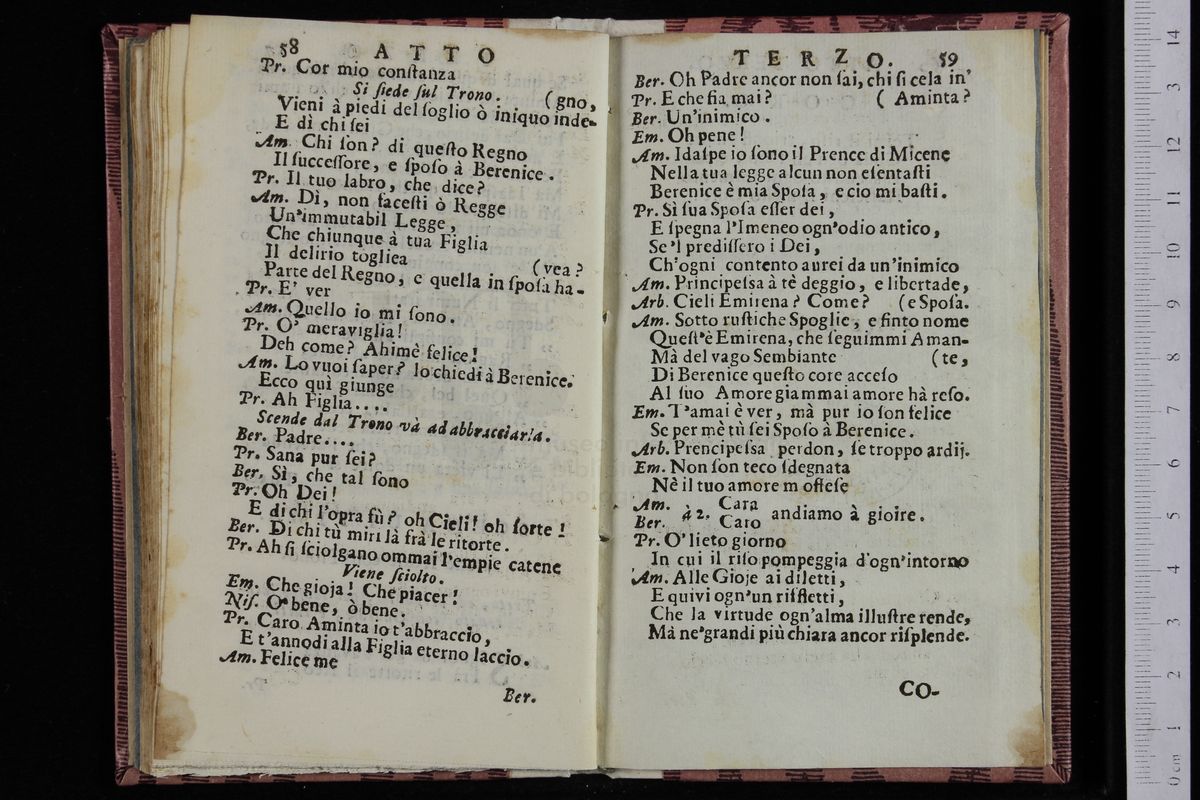 58 ATTO
Pr. Cor mio conſtanza
Si ſiede ſul Trono. (gno,
Vieni à piedi del ſoglio ò iniquo inde-
E dì chi ſei
Am. Chi ſon? di queſto Regno
Il ſucceſſore, e ſpoſo à Berenice.
Pr. Il tuo labro, che dice?
Am. Dì, non faceſti ò Regge
Un'immutabil Legge,
Che chiunque à tua Figlia
Il delirio togliea (vea?
Parte del Regno, e quella in ſpoſa ha-
Pr. E' ver
Am. Quello io mi ſono.
Pr. O' meraviglia!
Deh come? Ahimè felice!
Am. Lo vuoi ſaper? lo chiedi à Berenice.
Ecco quì giunge
Pr. Ah Figlia....
Scende dal Trono và ad abbracciarla.
Ber. Padre....
Pr. Sana pur ſei?
Ber. Sì, che tal ſono
Pr. Oh Dei!
E di chi l'opra fù? oh Cieli! oh ſorte!
Ber. Di chi tù miri là frà le ritorte.
Pr. Ah ſi ſciolgano ommai l'empie catene
Viene ſciolto.
Em. Che gioja! Che piacer!
Niſ. O' bene, ò bene.
Pr. Caro Aminta io t'abbraccio,
E t'annodi alla Figlia eterno laccio.
Am. Felice me
Ber.
TERZO. 59
Ber. Oh Padre ancor non ſai, chi ſi cela in'
Pr. E che fia mai? ( Aminta?
Ber. Un'inimico.
Em. Oh pene!
Am. Idaſpe io ſono il Prence di Micene
Nella tua legge alcun non eſentaſti
Berenice è mia Spoſa, e cio mi baſti.
Pr. Sì ſua Spoſa eſſer dei,
E ſpegna l'Imeneo ogn'odio antico,
Se 'l prediſſero i Dei,
Ch'ogni contento aurei da un'inimico
Am. Principeſsa à tè deggio, e libertade,
Arb. Cieli Emirena? Come? (e Spoſa.
Am. Sotto ruſtiche Spoglie, e finto nome
Queſt'è Emirena, che ſeguimmi Aman-
Mà del vago Sembiante (te,
Di Berenice queſto core acceſo
Al ſuo Amore giammai amore hà reſo.
Em. T'amai è ver, mà pur io ſon felice
Se per mè tù ſei Spoſo à Berenice.
Arb. Prencipeſsa perdon, ſe troppo ardij.
Em. Non ſon teco ſdegnata
Nè il tuo amore m offeſe
Am. Cara
à 2. andiamo à gioire.
Ber. Caro
Pr. O' lieto giorno
In cui il riſo pompeggia d'ogn'intorno
Am. Alle Gioje ai diletti,
E quivi ogn'un riffletti,
Che la virtude ogn'alma illuſtre rende,
Mà ne'grandi più chiara ancor riſplende.
CO-
0 cm 1 2 3 4 5 6 7 8 9 10 11 12 3 14